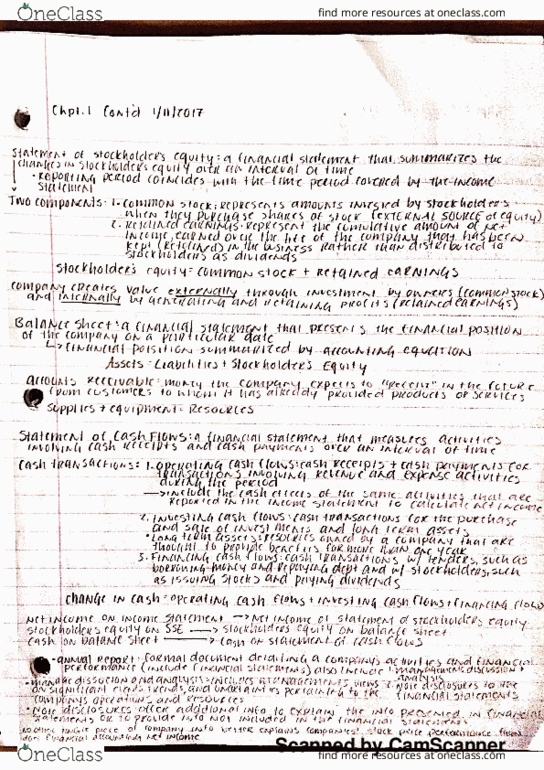 OneClass
find more resources at oneclass.com
Chpt. 1 Cont'd 1/11/2017
Statement of stockholder's equity: a financial statement that summarizes the
changes in stockholder's equity over an interval of time
• Reporting period coincides with the time period covered by the income
statement
Two components: 1. Common stock: represents amounts invested by stockholders
when they purchase shares of stock (EXTERNAL SOURCE of equity)
2. Retained earnings: represent the cumulative amount of net
income, earned over the life of the company, that has been
kept (retained) in the business rather than distributed to
stockholders as dividends
stockholder's equity = common stock + retained earnings
company creates value externally through investment by owners (common stock)
and internally by generating and retaining profits (retained earnings)
Balance sheet: a financial statement that presents the financial position
of the company on a particular date
↳ financial position summarized by accounting equation
Assets = Liabilities + Stockholder's Equity
accounts receivable: money the company expects to "receive" in the future
from customers to whom it has already provided products or services
supplies + equipment: Resources
Statement of Cash Flows: a financial statement that measures activities
involving cash receipts and cash payments over an interval of time
Cash transactions: 1. operating cash flows: cash receipts + cash payments for
transactions involving revenue and expense activities
during the period
→ include the cash effects of the same activities that are
reported in the income statement to calculate net income
2. Investing cash flows: cash transactions for the purchase
and sale of investments and long term assets
• Long term assets: resources owned by a company that are
thought to provide benefits for more than one year
3. Financing cash flows: cash transactions w/ lenders, such as
borrowing money and repaying debt and w/ stockholders, such
as issuing stocks and paying dividends
change in cash = operating cash flows + investing cash flows + financing flows
net income on income statement → net income of statement of stockholders equity
stockholders equity on SSE → stockholders equity on balance sheet
cash on balance sheet → cash on statement of cash flows
• annual report: formal document detailing a company's activities and financial
performance (include financial statements) also include 1. management discussion +
analysis
• manage discussion and analysis: includes managements views
2. note disclosures to the
on significant events, trends, and uncertainties pertaining to the
financial statements
company's operations and resources
• Note disclosures offer additional info to explain the info presented in financial
statements or to provide info not included in the financial statements
no other single piece of company info better explains companies' stock price performance than
does financial accounting net income
Scanned by CamScanner
OneClass
find more resources at oneclass.com